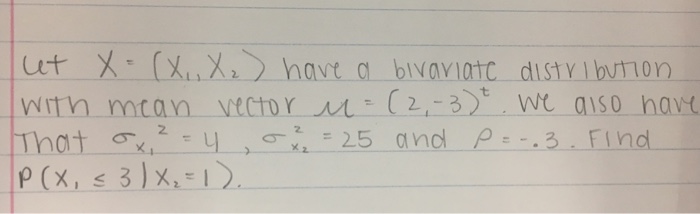 Let X = (X₁, X₂) have a bivariate distribution
with mean vector μ = (2,-3)ᵗ. We also have
That σₓ₁² = 4, σₓ₂² = 25 and ρ = -.3. Find
P(X₁ ≤ 3 | X₂ = 1).